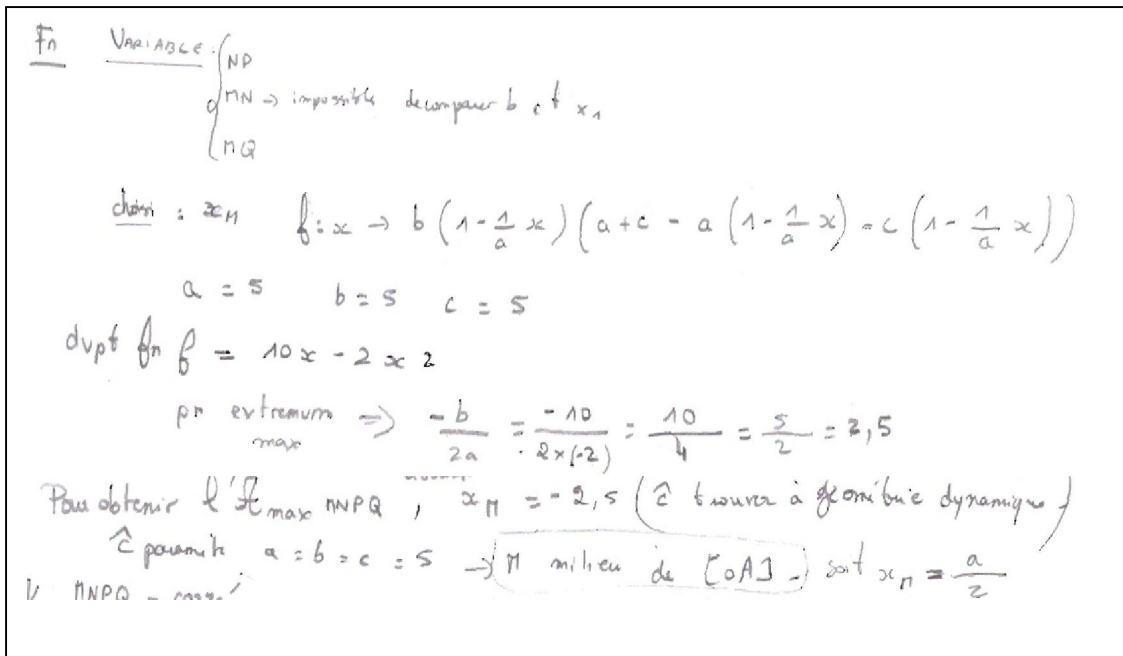 Fn VARIABLE : NP
MN → impossible de comparer b et x₁
MQ
choisi : x_M f : x → b (1 - 1/a x) (a + c - a (1 - 1/a x) - c (1 - 1/a x))
a = 5 b = 5 c = 5
dvpt fn f = 10x - 2x2
pr extremum ⇒ -b/2a = -10/(2×(-2)) = 10/4 = 5/2 = 2,5
max
Pour obtenir l'A max MNPQ , x_M = -2,5 (ĉ trouver à géométrie dynamique)
ĉ paramètr a = b = c = 5 → M milieu de [OA] - soit x_M = a/2
MNPQ